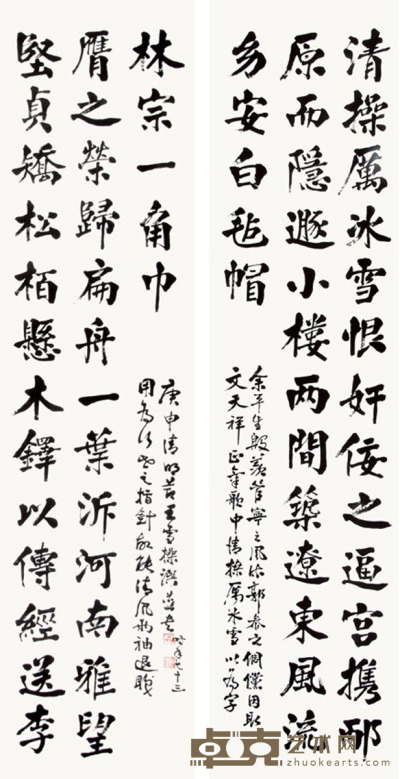 清操厲冰雪恨奸佞之逼宮携邴
原而隱遯小樓两間築遼東風流
幼安白毡帽
余平生殷慕管寧之風流郭泰之倜儻因取
文天祥正氣歌中清操厲冰雪以為字
堅貞矯松栢懸木鐸以傳經送李
膺之榮歸扁舟一葉泝河南雅望
林宗一角巾
用為行世之指針 清風兩袖退職
庚申清明 王雪操撰並書
時年七十三
卓克艺术网
www.zhuokearts.com